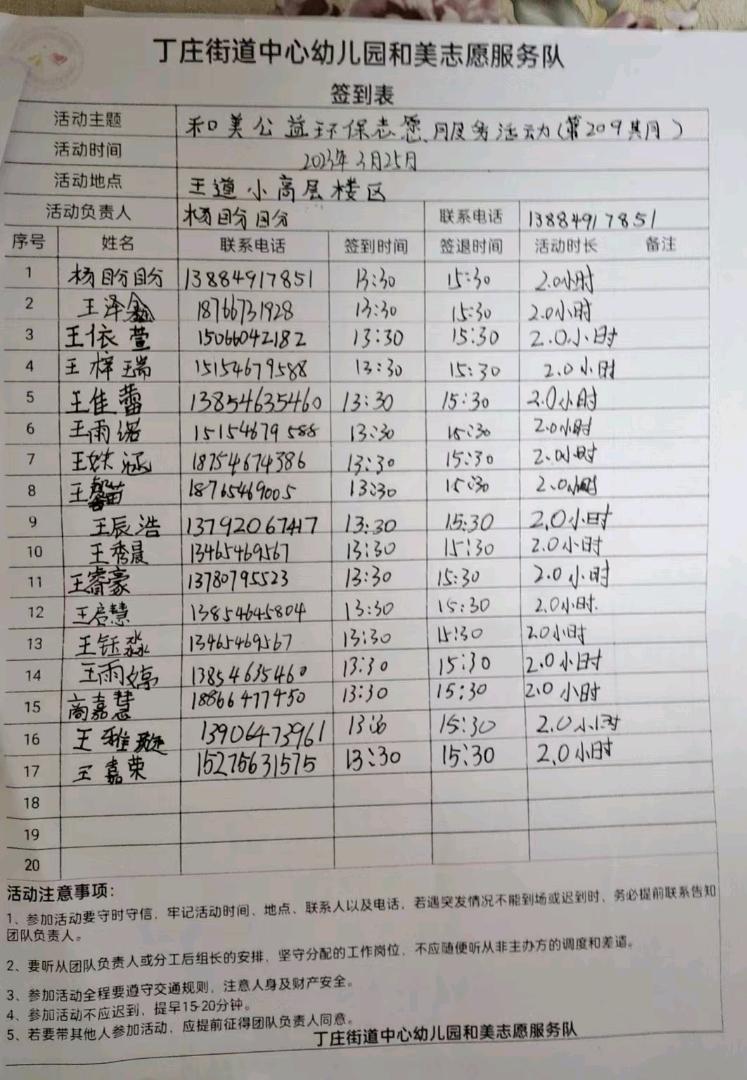 丁庄街道中心幼儿园和美志愿服务队
签到表
活动主题 和美公益环保志愿服务活动(第209期)
活动时间 2023年3月25日
活动地点 王道小高层楼区
活动负责人 杨盼盼 联系电话 13884917851
序号 姓名 联系电话 签到时间 签退时间 活动时长 备注
1 杨盼盼 13884917851 13:30 15:30 2.0小时
2 王泽鑫 18766731928 13:30 15:30 2.0小时
3 王依萱 15066042182 13:30 15:30 2.0小时
4 王梓瑞 15154679588 13:30 15:30 2.0小时
5 王佳蕾 13854635460 13:30 15:30 2.0小时
6 王雨诺 15154679588 13:30 15:30 2.0小时
7 王姝涵 18754674386 13:30 15:30 2.0小时
8 王馨苗 18765469005 13:30 15:30 2.0小时
9 王辰浩 13792067417 13:30 15:30 2.0小时
10 王秀晨 13465469567 13:30 15:30 2.0小时
11 王睿豪 13780795523 13:30 15:30 2.0小时
12 王启慧 13854645804 13:30 15:30 2.0小时.
13 王钰淼 13465469567 13:30 15:30 2.0小时
14 王雨婷 13854635460 13:30 15:30 2.0小时
15 商嘉慧 18866477450 13:30 15:30 2.0小时
16 王雅 13906473961 15:30 2.0小时
17 王嘉荣 15275631575 13:30 15:30 2.0小时
18
19
20
活动注意事项:
1、参加活动要守时守信,牢记活动时间、地点、联系人以及电话,若遇突发情况不能到场或迟到时,务必提前联系告知
团队负责人。
2、要听从团队负责人或分工后组长的安排,坚守分配的工作岗位,不应随便听从非主办方的调度和差遣。
3、参加活动全程要遵守交通规则,注意人身及财产安全。
4、参加活动不应迟到,提早15-20分钟。
5、若要带其他人参加活动,应提前征得团队负责人同意。
丁庄街道中心幼儿园和美志愿服务队